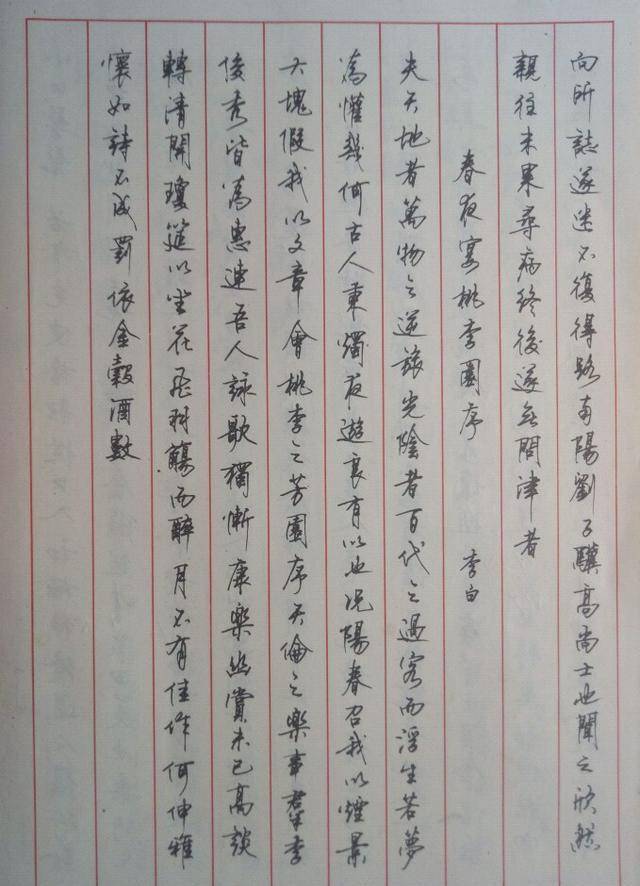 向所誌遂迷不復得路南陽劉子驥高尚士也聞之欣然
親往未果尋病終後遂無問津者
春夜宴桃李園序 李白
夫天地者萬物之逆旅光陰者百代之過客而浮生若夢
為懽幾何古人秉燭夜遊良有以也況陽春召我以煙景
大塊假我以文章會桃李之芳園序天倫之樂事羣季
俊秀皆為惠連吾人詠歌獨慚康樂幽賞未已高談
轉清開瓊筵以坐花飛羽觴而醉月不有佳作何伸雅
懷如詩不成罰依金穀酒數